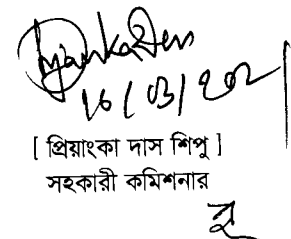 16/03/202
[ প্রিয়াংকা দাস শিপু ]
সহকারী কমিশনার